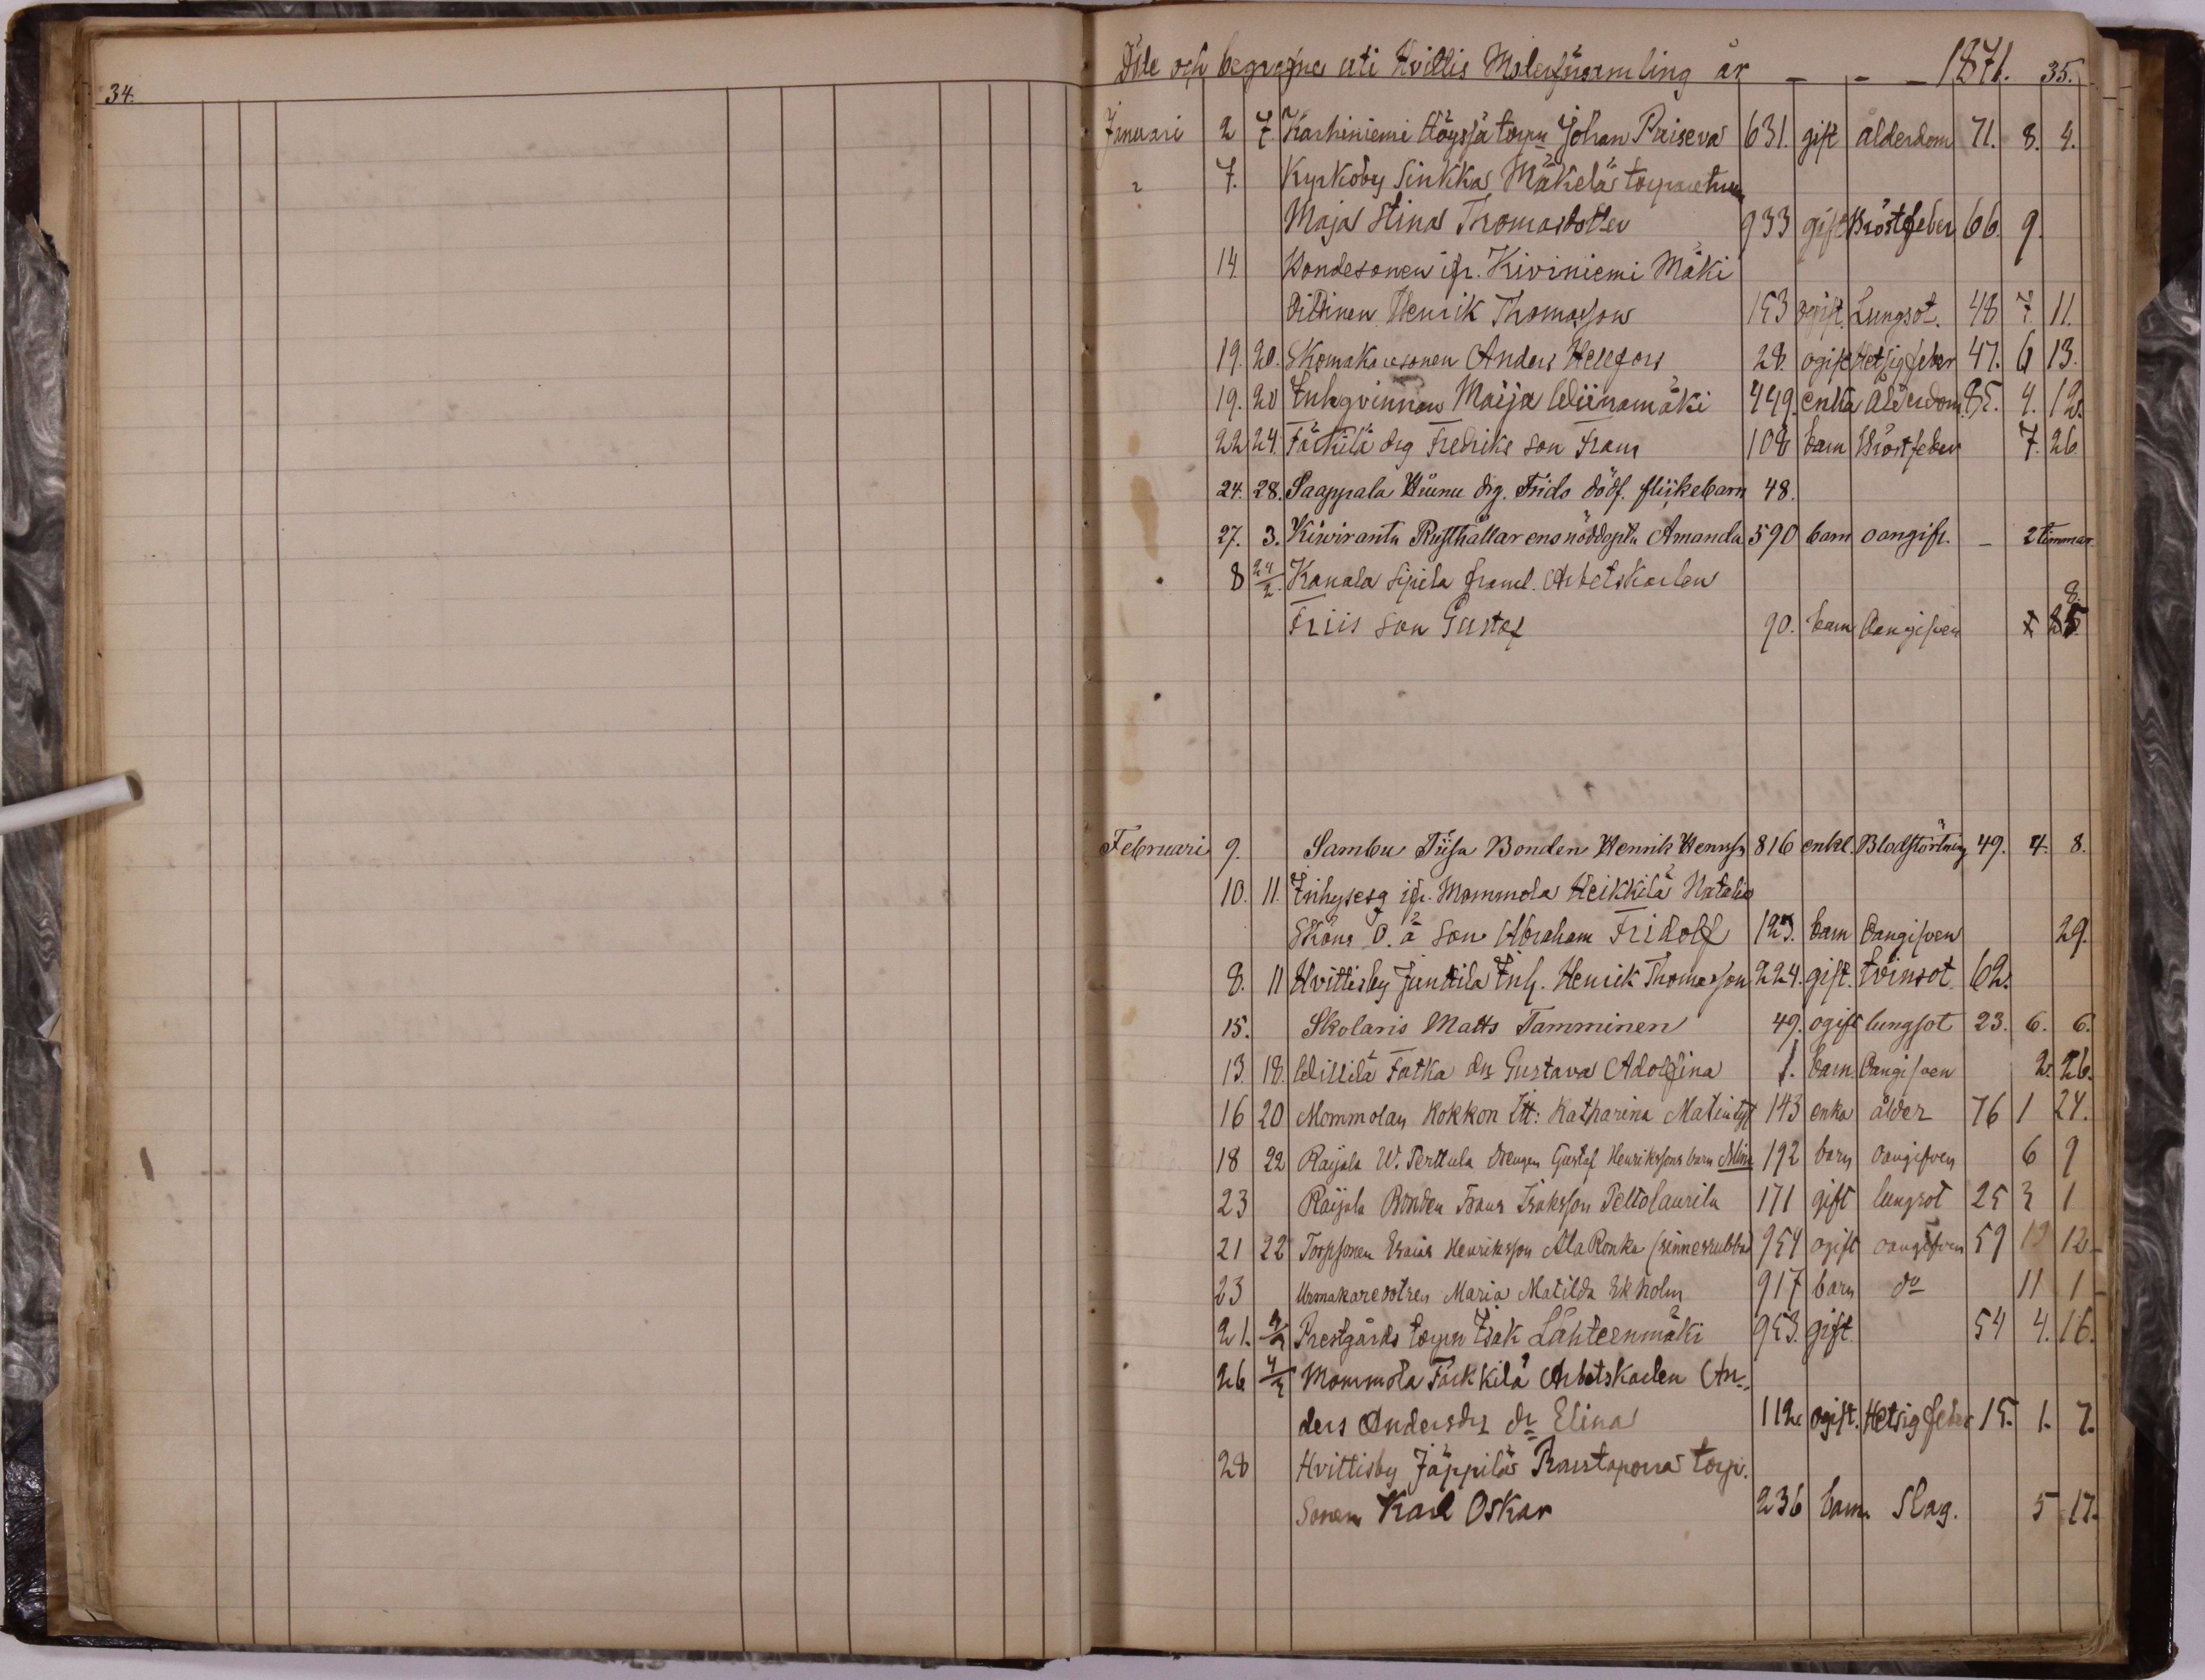 34.
Döde och begrafne uti Hvittis Moderförsamling år - - - 1871. 35.
Januari 2 7 Karhiniemi Höyssä torpn Johan Raiseva 631. gift ålderdom 71. 8. 4.
" 7. Kyrkoby Sinkka Mäkelä torparehu
Maja Stina Thomasdotter 933 gift Bröstfeber 66. 9.
14. Bondesonen ifr. Kiviniemi Mäki
Henrik Thomasson 153 ogift. Lungsot. 48 7. 11.
19. 20. Skomakaresonen Anders Hellfors 28. ogift Hetsigfeber 47. 6 13.
19. 20 Inhqvinnan Maija Wiinamäki 449. enka ålderdom. 85. 4. 12.
22 24. Färkilä drg Fredriks son Frans 108 barn Bröstfeber 7. 26.
24. 28. Saappala Uunu drg. Frids dödf. flickebarn 48.
27. 3. Kiviranta Rusthållarens nöddöpta Amanda 590 barn oangift. - 2 timmar
8 24/2. Kanala Sipila framl. Arbetskarlen
8.
Friis son Gustaf 90. barn Oangifven 25
Februari 9. Sambu Tiisa Bonden Henrik Henrss 816 enkl. Blodstörtning 49. 4. 8.
10. 11. Inhysesq ifr. Mommola Heikkilä Natalia
O. ä son Abraham Fridolf 123. barn Oangifven 29.
8. 11 Hvittisby Junttila Inh. Henrik Thomasson 224. gift. tvinsot 62.
15. Skolaris Matts Tamminen 49. ogift lungsot 23. 6. 6.
13. 18. Willilä Fatka dr Gustava Adolfina 1. barn. Oangifven 2. 26.
16 20 Mommolan Kokkon Itt: Katharina Matintyt 143 enka ålder 76 1 24.
18 22 Raijala W. Perttula Drengen Gustaf Henrikssons barn Alina 192 barn oangifven 6 9
23 Raijala Bonden Frans Isaksson Peltolaurila 171 gift lungsot 25 3 1
21 22 Torpsonen Esaias Henriksson AlaRonka (sinnesrubbad) 954 ogift oangifven 59 12
23 Urmakaredotren Maria Matilda Ekholm 917 barn do 11 1
21. Prestgårds torpn Isak Lähteenmäki 953. gift. 54 4. 16.
26 4/3 Mommola Färkkilä Arbetskarlen An-
ders Andersdr dr Elina 112. ogift. Hetsig feber 15. 1. 7.
28 Hvittisby Jäppilä Rautaporra torp.
Sonen Karl Oskar 236 barn. Slag. 5 17.